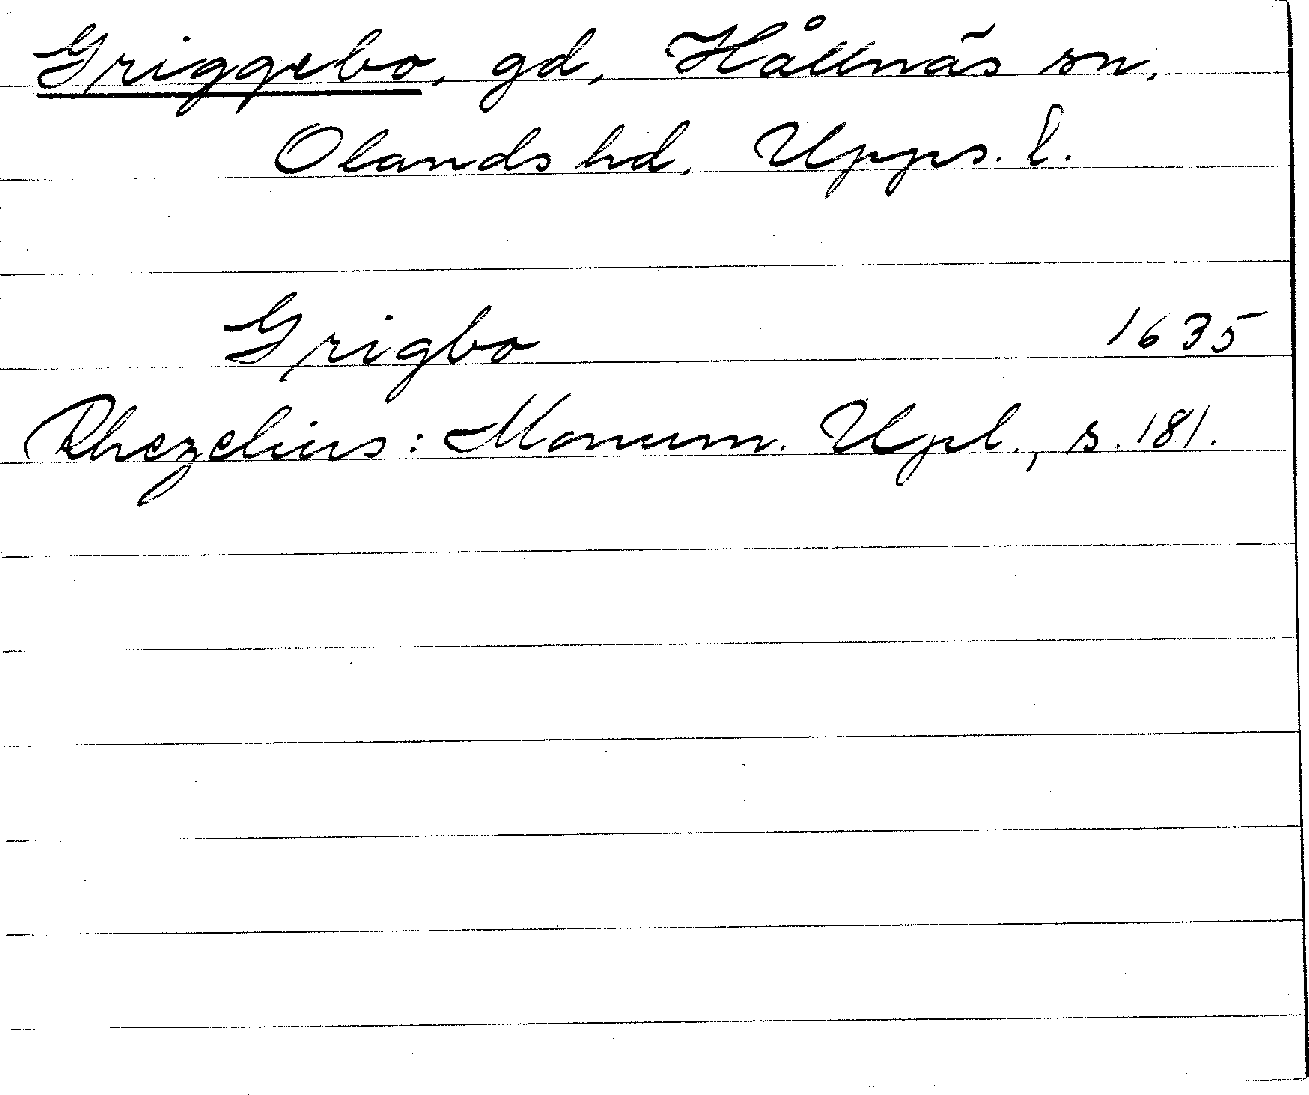 Griggebo, gd, Hållnäs sn,
Olands hd. Upps. l.
Grigbo 1635
Rhezelius: Monum. Upl., s. 181.